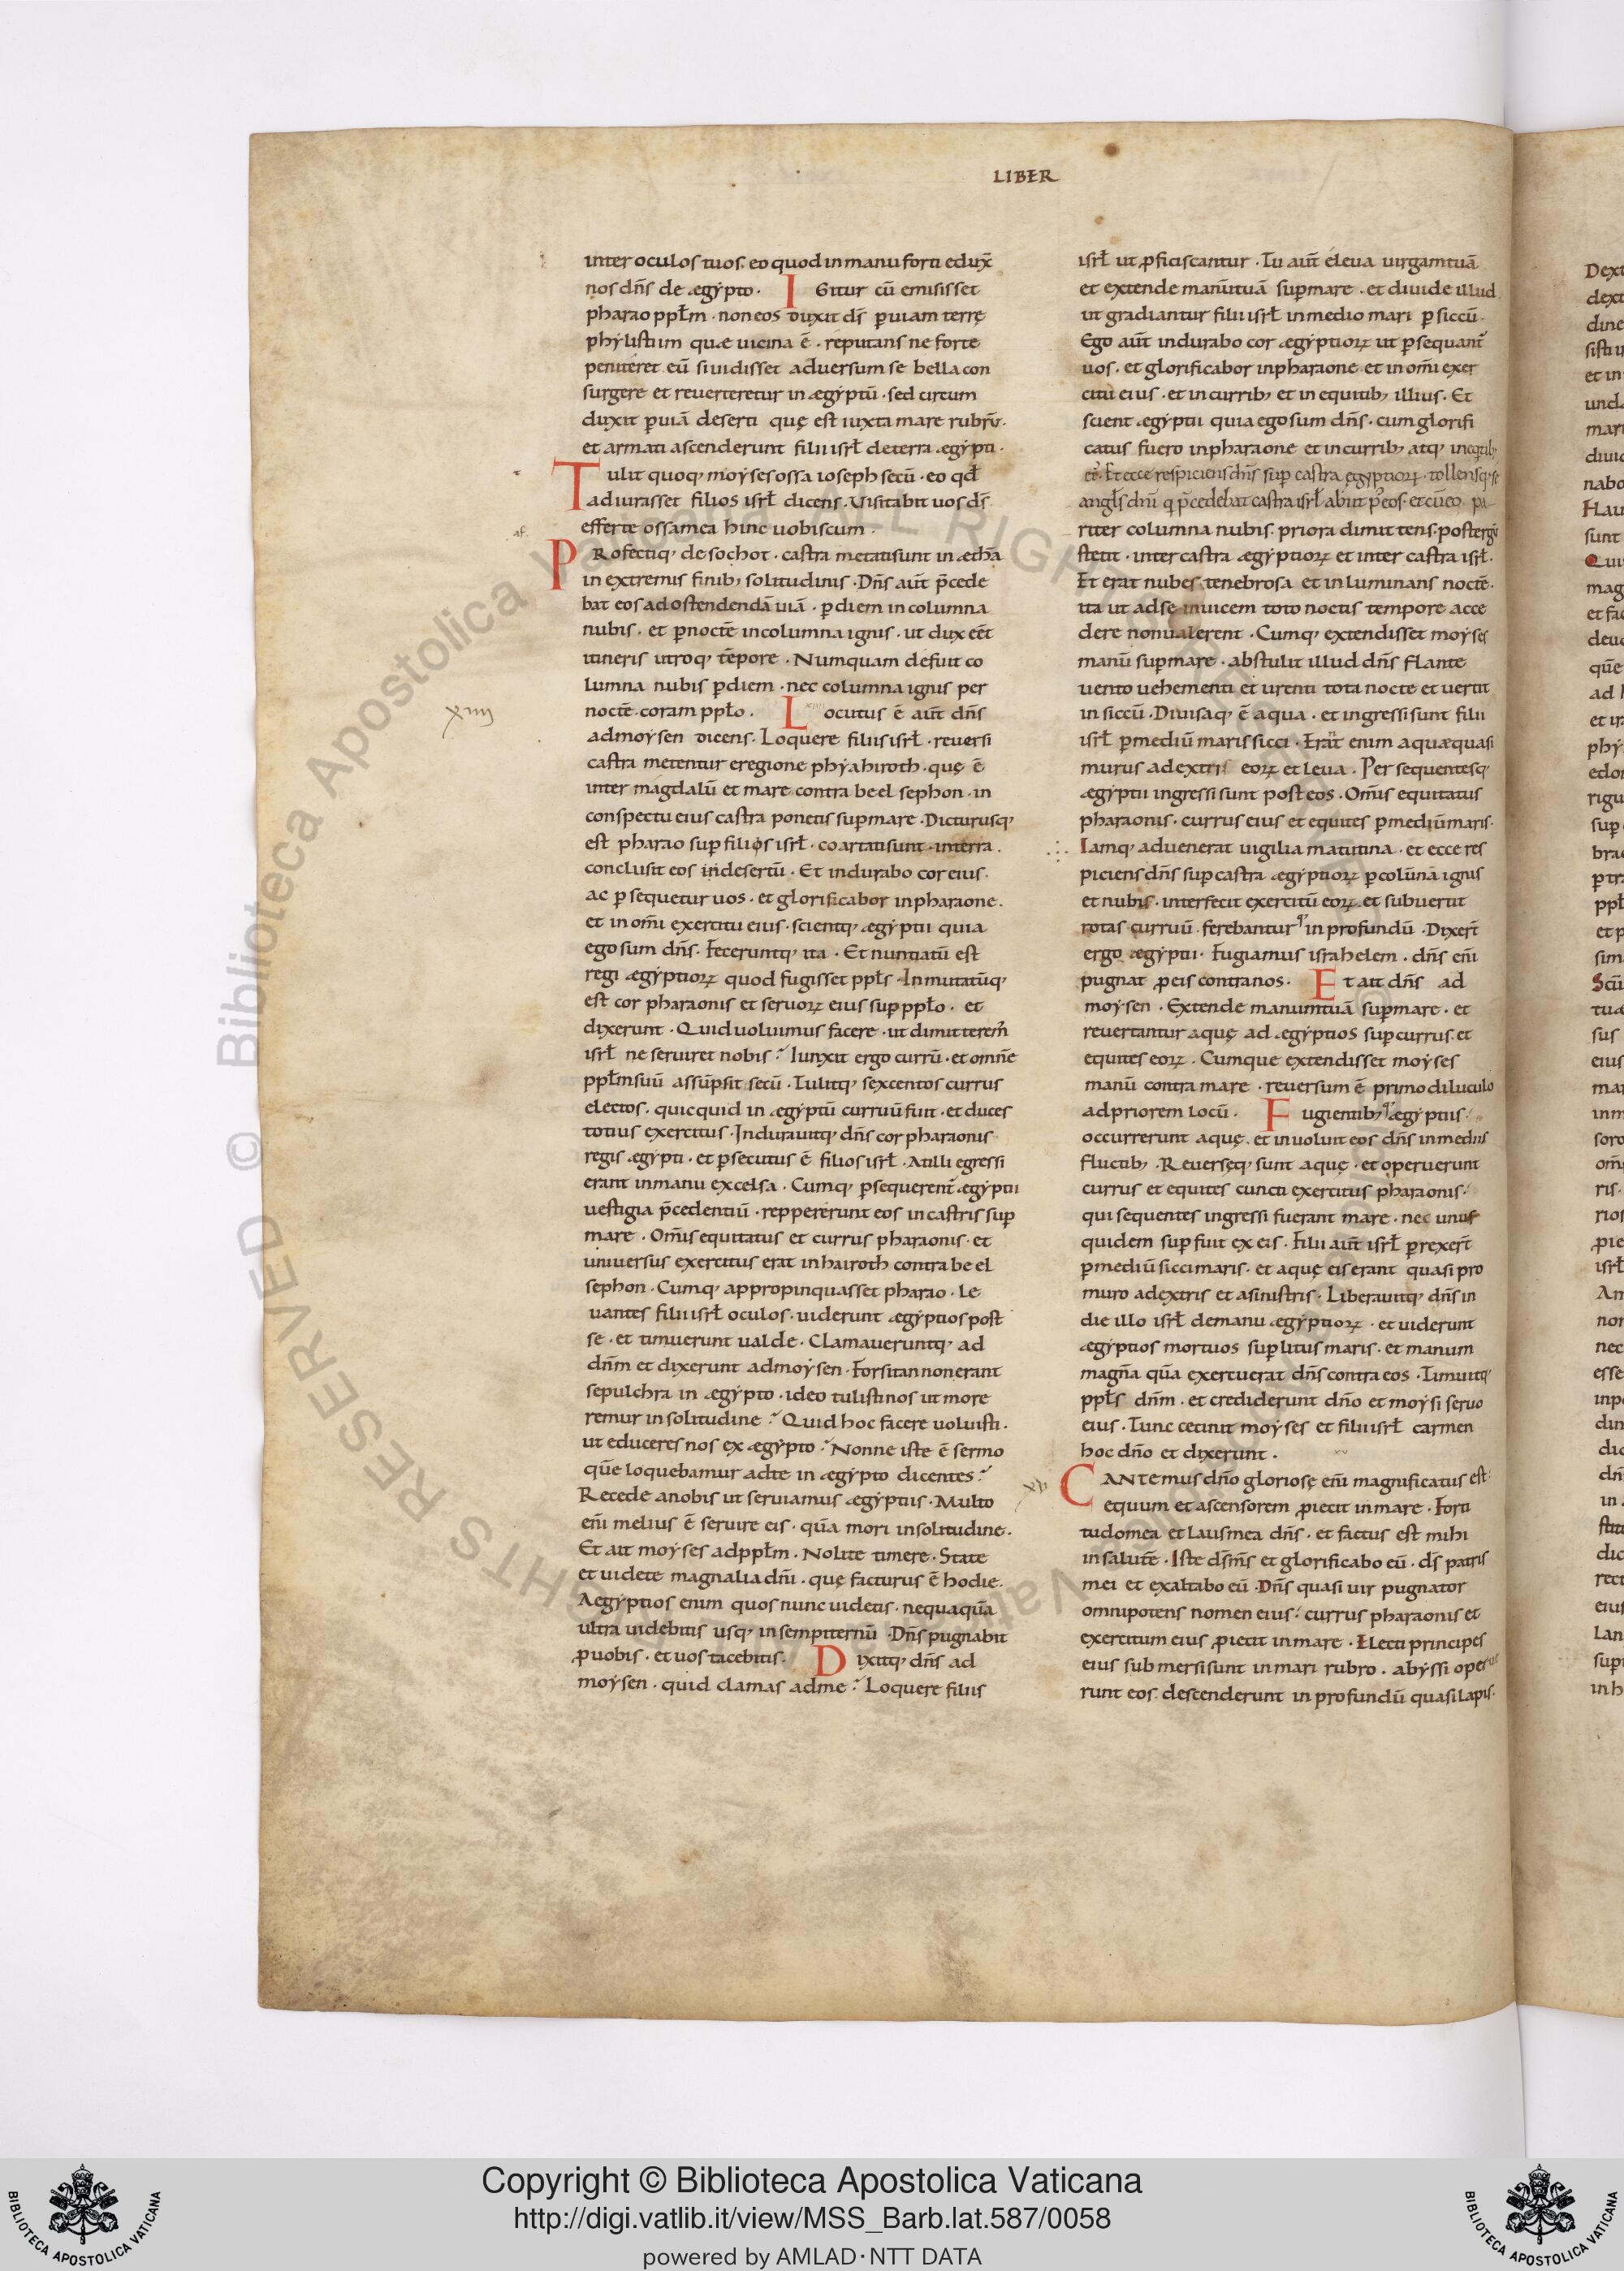 LIBER
inter oculos tuos. eo quod in manu forti edux̄
nos dn̄s de ægẏpto · IGitur cū emisisset
pharao ppłm · non eos duxit ds̄ ꝑ uiam terrę
phẏlistim quæ uicina ē · reputans ne forte
peniteret eū si uidisset aduersum se bella con
surgere et reuerteretur in ægẏptū · sed circum
duxit ꝑ uiā deserti quę est iuxta mare rubrū ·
et armati ascenderunt filii isrł de terra ægẏpti ·
Tulit quoq; moẏses ossa ioseph secū · eo qđ
adiurasset filios isrł dicens · Visitabit uos ds̄
efferte ossa mea hinc uobiscum ·
PRofectiq; de sochot · castra metati sunt in æthā
in extremis finib; solitudinis · Dn̄s aūt p̄cede
bat eos ad ostendendā uiā · ꝑ diem in columna
nubis · et ꝑ noctē in columna ignis · ut dux eēt
itineris utroq; tēpore · Numquam defuit co
lumna nubis ꝑ diem · nec columna ignis per
noctē · coram ppło · Locutus ē aūt dn̄s
xiiii
ad moẏsen dicens · Loquere filiis isrł · reuersi
castra metentur e regione phẏahiroth · quę ē
inter magdalū et mare contra beel sephon · in
conspectu eius castra ponetis suꝑ mare · Dicturusq;
est pharao suꝑ filios isrł · coartati sunt in terra ·
conclusit eos in desertū · Et indurabo cor eius ·
ac ꝑsequetur uos · et glorificabor in pharaone ·
et in om̄i exercitu eius · scientq; ægẏptii quia
ego sum dn̄s · Feceruntq; ita · Et nuntiatū est
regi ægẏptioꝝ quod fugisset ppłs · Inmutatūq;
est cor pharaonis et seruoꝝ eius suꝑ ppło · et
dixerunt · Quid uoluimus facere · ut dimitterem̄
isrł ne seruiret nobis? Iunxit ergo currū · et omnē
ppłm suū assūpsit secū · Tulitq; sexcentos currus
electos · quicquid in ægẏptū curruū fuit · et duces
totius exercitus · Indurauitq; dn̄s cor pharaonis
regis ægẏpti · et ꝑsecutus ē filios isrł · At illi egressi
erant in manu excelsa · Cumq; ꝑsequerent̄ ægẏptii
uestigia p̄cedentiū · reppererunt eos in castris suꝑ
mare · Om̄is equitatus et currus pharaonis · et
uniuersus exercitus erat in hairoth contra beel
sephon · Cumq; appropinquasset pharao · le
uantes filii isrł oculos · uiderunt ægẏptios post
se · et timuerunt ualde · Clamaueruntq; ad
dn̄m et dixerunt ad moẏsen · Forsitan non erant
sepulchra in ægẏpto · ideo tulisti nos ut more
remur in solitudine? Quid hoc facere uoluisti ·
ut educeres nos ex ægẏpto? Nonne iste ē sermo
quē loquebamur ad te in ægẏpto dicentes?
Recede a nobis ut seruiamus ægẏptiis · Multo
em̄ melius ē seruire eis · quā mori in solitudine ·
Et ait moẏses ad ppłm · Nolite timere · State
et uidete magnalia dn̄i · quę facturus ē hodie ·
Aegẏptios enim quos nunc uidetis · nequaquā
ultra uidebitis usq; in sempiternū · Dn̄s pugnabit
ꝓ uobis · et uos tacebitis · Dixitq; dn̄s ad
moẏsen · quid clamas ad me? Loquere filiis
isrł ut ꝓficiscantur · Tu aūt eleua uirgam tuā
et extende manū tuā suꝑ mare · et diuide illud
ut gradiantur filii isrł in medio mari ꝑ siccū ·
Ego aūt indurabo cor ægẏptioꝝ ut ꝑsequant̄
uos · et glorificabor in pharaone et in om̄i exer
citu eius · et in currib; et in equitib; illius · Et
scient ægẏptii quia ego sum dn̄s · cum glorifi
catus fuero in pharaone et in currib; atq; in eqͥtib;
Et ecce respiciens dn̄s suꝑ castra ęgyptioꝝ · tollensq; se
angłs dn̄i q p̄cedebat castra isrł abiit p͛ eos · et cū eo pa
riter columna nubis · priora dimittens post tergū
stetit · inter castra ægẏptioꝝ et inter castra isrł ·
Et erat nubes tenebrosa et inluminans noctē ·
ita ut ad se inuicem toto noctis tempore acce
dere non ualerent · Cumq; extendisset moẏses
manū suꝑ mare · abstulit illud dn̄s flante
uento uehementi et urenti tota nocte et uertit
in siccū · Diuisaq; ē aqua · et ingressi sunt filii
isrł ꝑ mediū maris sicci · Erat enim aqua quasi
murus a dextris eoꝝ et leua · Persequentesq;
ægẏptii ingressi sunt post eos · Om̄is equitatus
pharaonis · currus eius et equites ꝑ mediū maris ·
Iamq; aduenerat uigilia matutina · et ecce res
piciens dn̄s suꝑ castra ægẏptioꝝ ꝑ colūnā ignis
et nubis · interfecit exercitū eoꝝ · et subuertit
rotas curruū · ferebantur q; in profundū · Dixer̄t
ergo ægẏptii · Fugiamus israhelem · dn̄s em̄
pugnat ꝓ eis contra nos · Et ait dn̄s ad
moẏsen · Extende manum tuā suꝑ mare · et
reuertantur aquę ad ægẏptios suꝑ currus et
equites eoꝝ · Cumque extendisset moẏses
manū contra mare · reuersum ē primo diluculo
ad priorem locū · Fugientib; q; ægẏptiis ·
occurrerunt aquę · et inuoluit eos dn̄s in mediis
fluctib; · Reuersęq; sunt aquę · et operuerunt
currus et equites cuncti exercitus pharaonis ·
qui sequentes ingressi fuerant mare · nec unus
quidem suꝑfuit ex eis · Filii aūt isrł ꝑrexer̄t
ꝑ mediū sicci maris · et aquę eis erant quasi pro
muro a dextris et a sinistris · Liberauitq; dn̄s in
die illo isrł de manu ægẏptioꝝ · et uiderunt
ægẏptios mortuos suꝑ litus maris · et manum
magn̄a quā exercuerat dn̄s contra eos · Timuitq;
ppłs dn̄m · et crediderunt dn̄o et moẏsi seruo
eius · Tunc cecinit moẏses et filii isrł carmen
hoc dn̄o et dixerunt ·
xv
CANTemus dn̄o gloriosę em̄ magnificatus est ·
equum et ascensorem ꝓiecit in mare · Forti
tudo mea et laus mea dn̄s · et factus est mihi
in salutē · Iste ds̄ m̄s et glorificabo eū · ds̄ patris
mei et exaltabo eū · Dn̄s quasi uir pugnator
omnipotens nomen eius · currus pharaonis et
exercitum eius ꝓiecit in mare · Electi principes
eius submersi sunt in mari rubro · abẏssi operue
runt eos · descenderunt in profundū quasi lapis ·
© Biblioteca Apostolica Vaticana ALL RIGHTS RESERVED
BIBLIOTECA APOSTOLICA VATICANA
Copyright © Biblioteca Apostolica Vaticana
http://digi.vatlib.it/view/MSS_Barb.lat.587/0058
powered by AMLAD·NTT DATA
BIBLIOTECA APOSTOLICA VATICANA